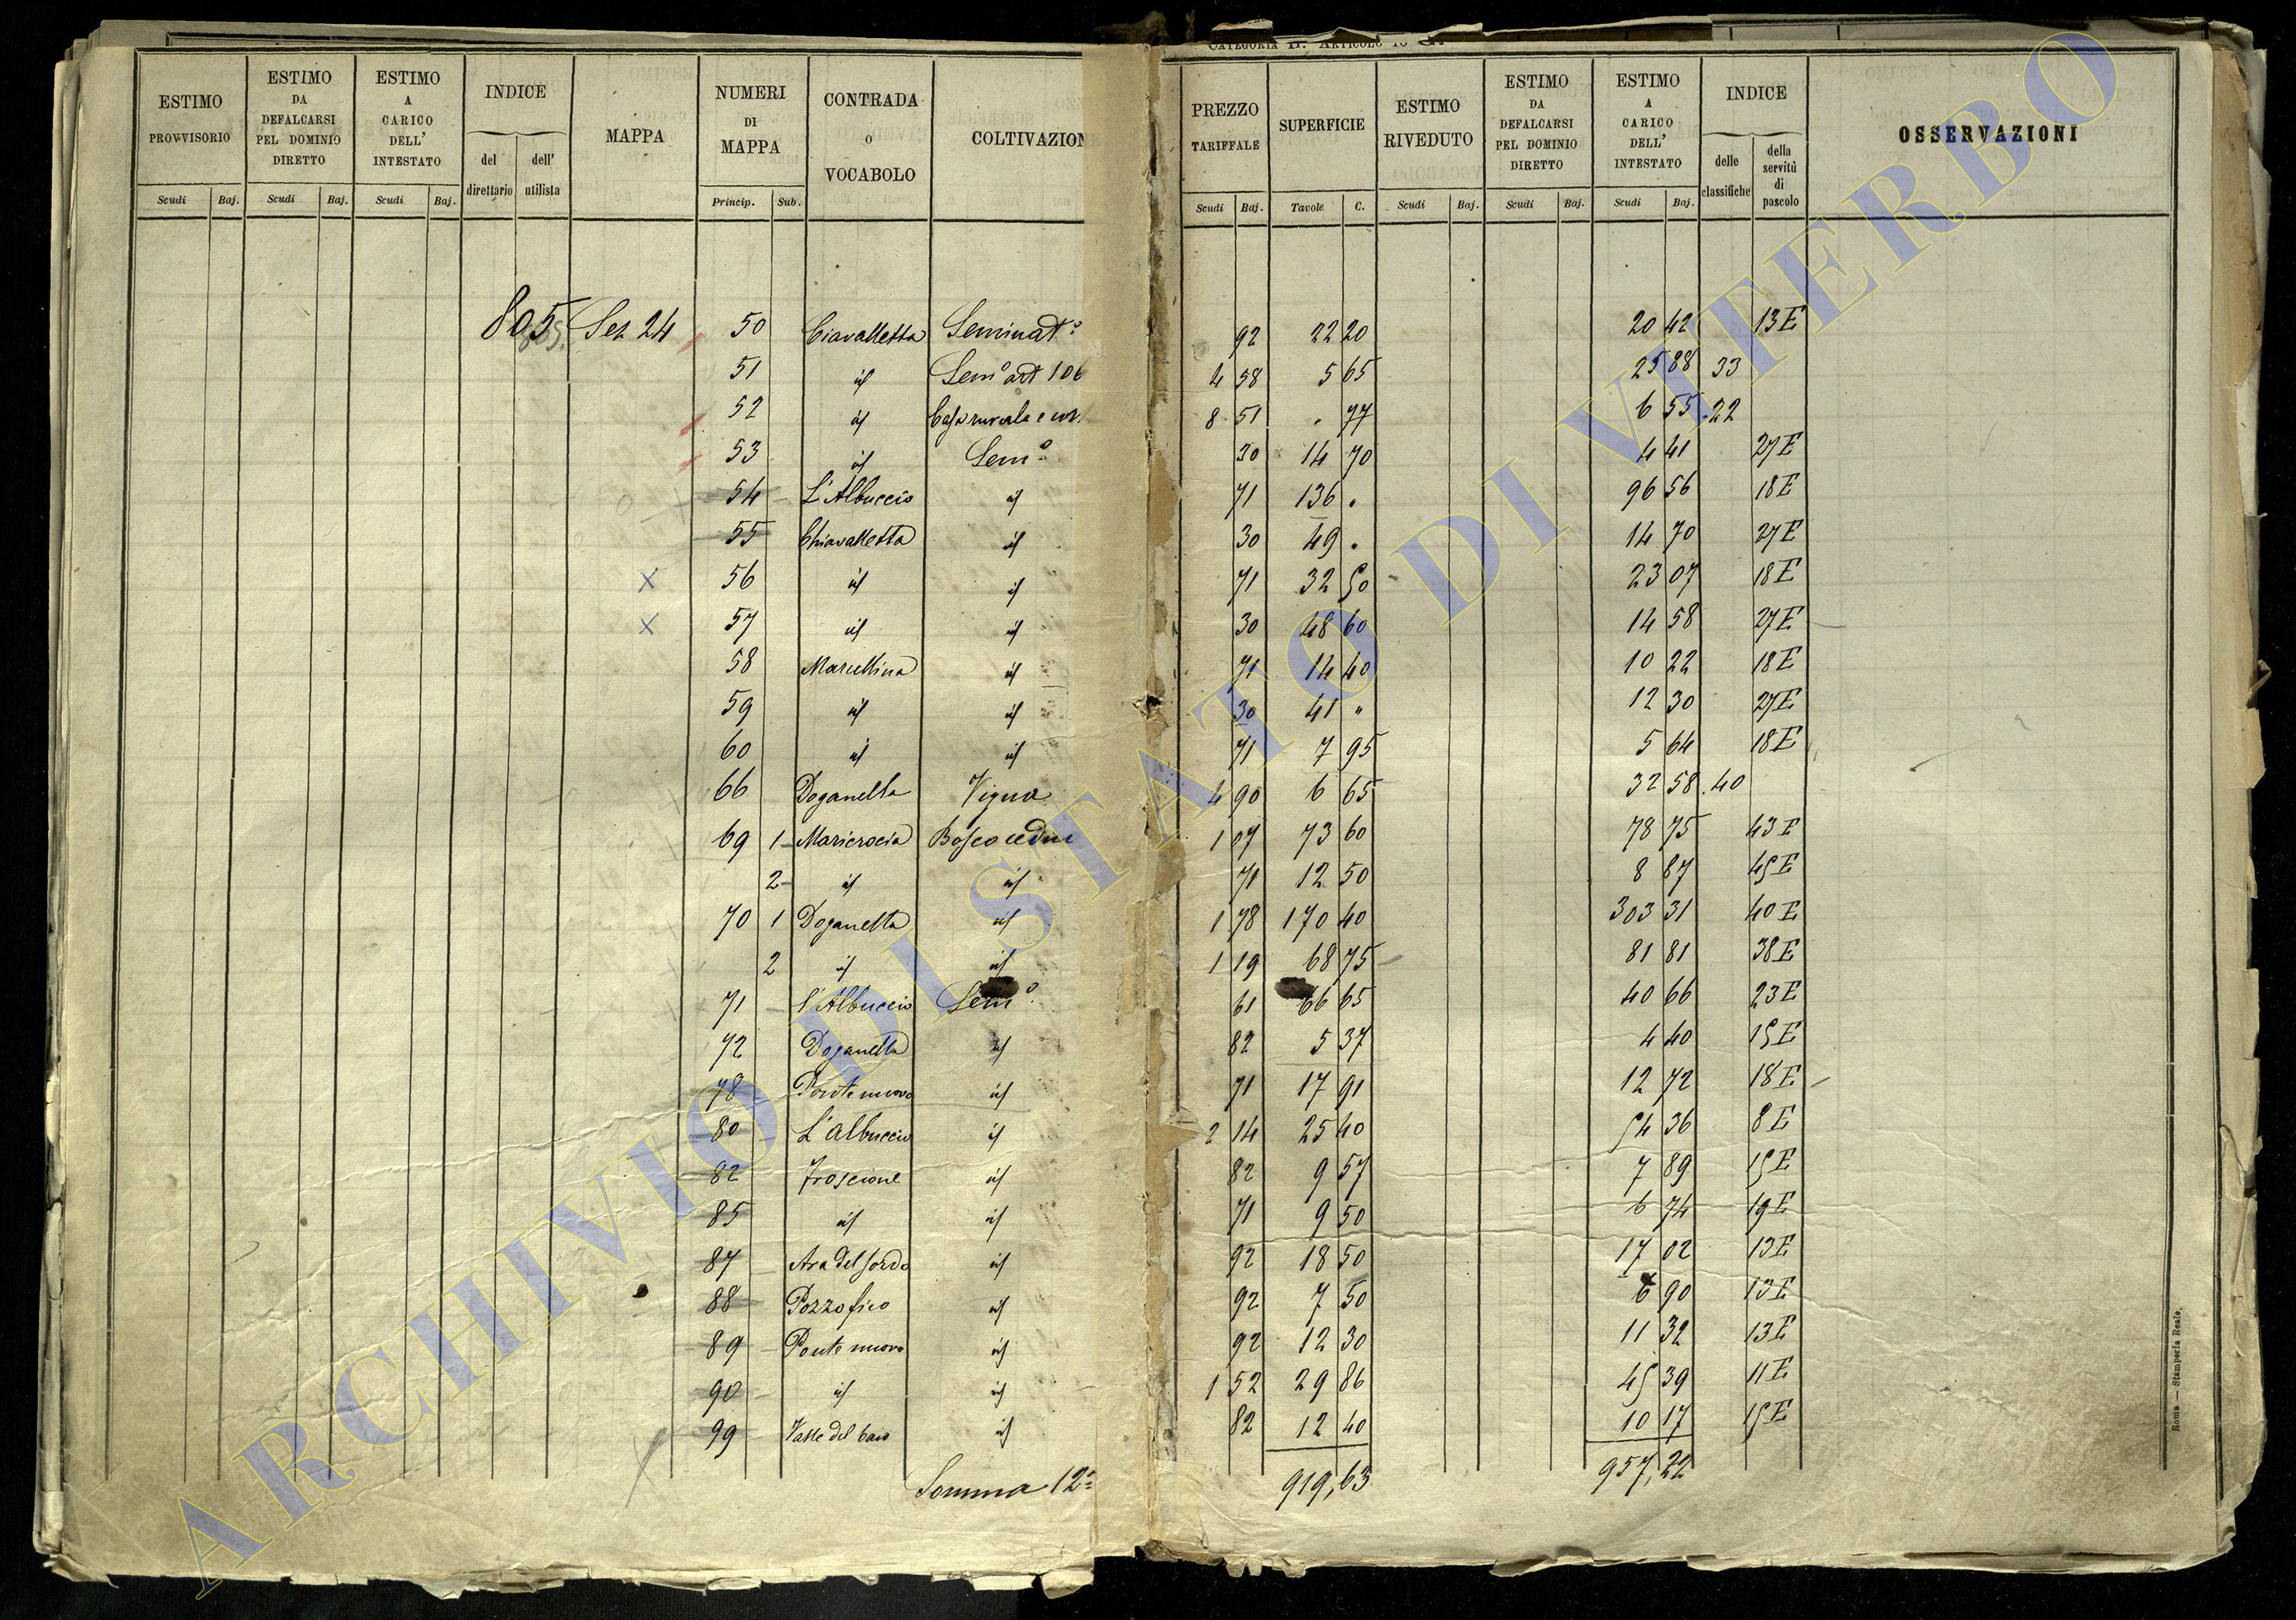 CATEGORIA II. ARTICOLO
ESTIMO PROVVISORIO | ESTIMO DA DEFALCARSI PEL DOMINIO DIRETTO | ESTIMO A CARICO DELL' INTESTATO | INDICE | MAPPA | NUMERI DI MAPPA | CONTRADA O VOCABOLO | COLTIVAZION | PREZZO TARIFFALE | SUPERFICIE | ESTIMO RIVEDUTO | ESTIMO DA DEFALCARSI PEL DOMINIO DIRETTO | ESTIMO A CARICO DELL' INTESTATO | INDICE | OSSERVAZIONI
Scudi | Baj. | Scudi | Baj. | Scudi | Baj. | del direttario | dell' utilista | Princip. | Sub. | Scudi | Baj. | Tavole | C. | Scudi | Baj. | Scudi | Baj. | Scudi | Baj. | delle classifiche | della servitù di pascolo
805 Sez 24 50 Ciavalletta Seminat° 92 22 20 20 42 13E
51 id Sem° art 106 4 58 5 65 25 88 33
52 id Casa rurale e cor. 8 51 " 77 6 55 22
53 id Sem° 30 14 70 4 41 27E
54 L'Albuccio id 71 136 " 96 56 18E
55 Chiavalletta id 30 49 " 14 70 27E
56 id id 71 32 50 23 07 18E
57 id id 30 48 60 14 58 27E
58 Marcellina id 71 14 40 10 22 18E
59 id id 30 41 " 12 30 27E
60 id id 71 7 95 5 64 18E
66 Doganella Vigna 4 90 6 65 32 58 40
69 1 Maricrocia Bosco ceduo 1 07 73 60 78 75 43E
2 id id 71 12 50 8 87 45E
70 1 Doganella id 1 78 170 40 303 31 40E
2 id id 1 19 68 75 81 81 38E
71 l'Albuccio Sem° 61 66 65 40 66 23E
72 Doganella id 82 5 37 4 40 15E
78 Ponte nuovo id 71 17 91 12 72 18E
80 L'albuccio id 2 14 25 40 54 36 8E
82 Troscione id 82 9 57 7 89 15E
85 id id 71 9 50 6 74 19E
87 Ara del sordo id 92 18 50 17 02 13E
88 Pozzo fico id 92 7 50 6 90 13E
89 Ponte nuovo id 92 12 30 11 32 13E
90 id id 1 52 29 86 45 39 11E
99 Valle del id 82 12 40 10 17 15E
Somma 12ª 919,63 957,22
Roma — Stamperia Reale.
ARCHIVIO DI STATO DI VITERBO